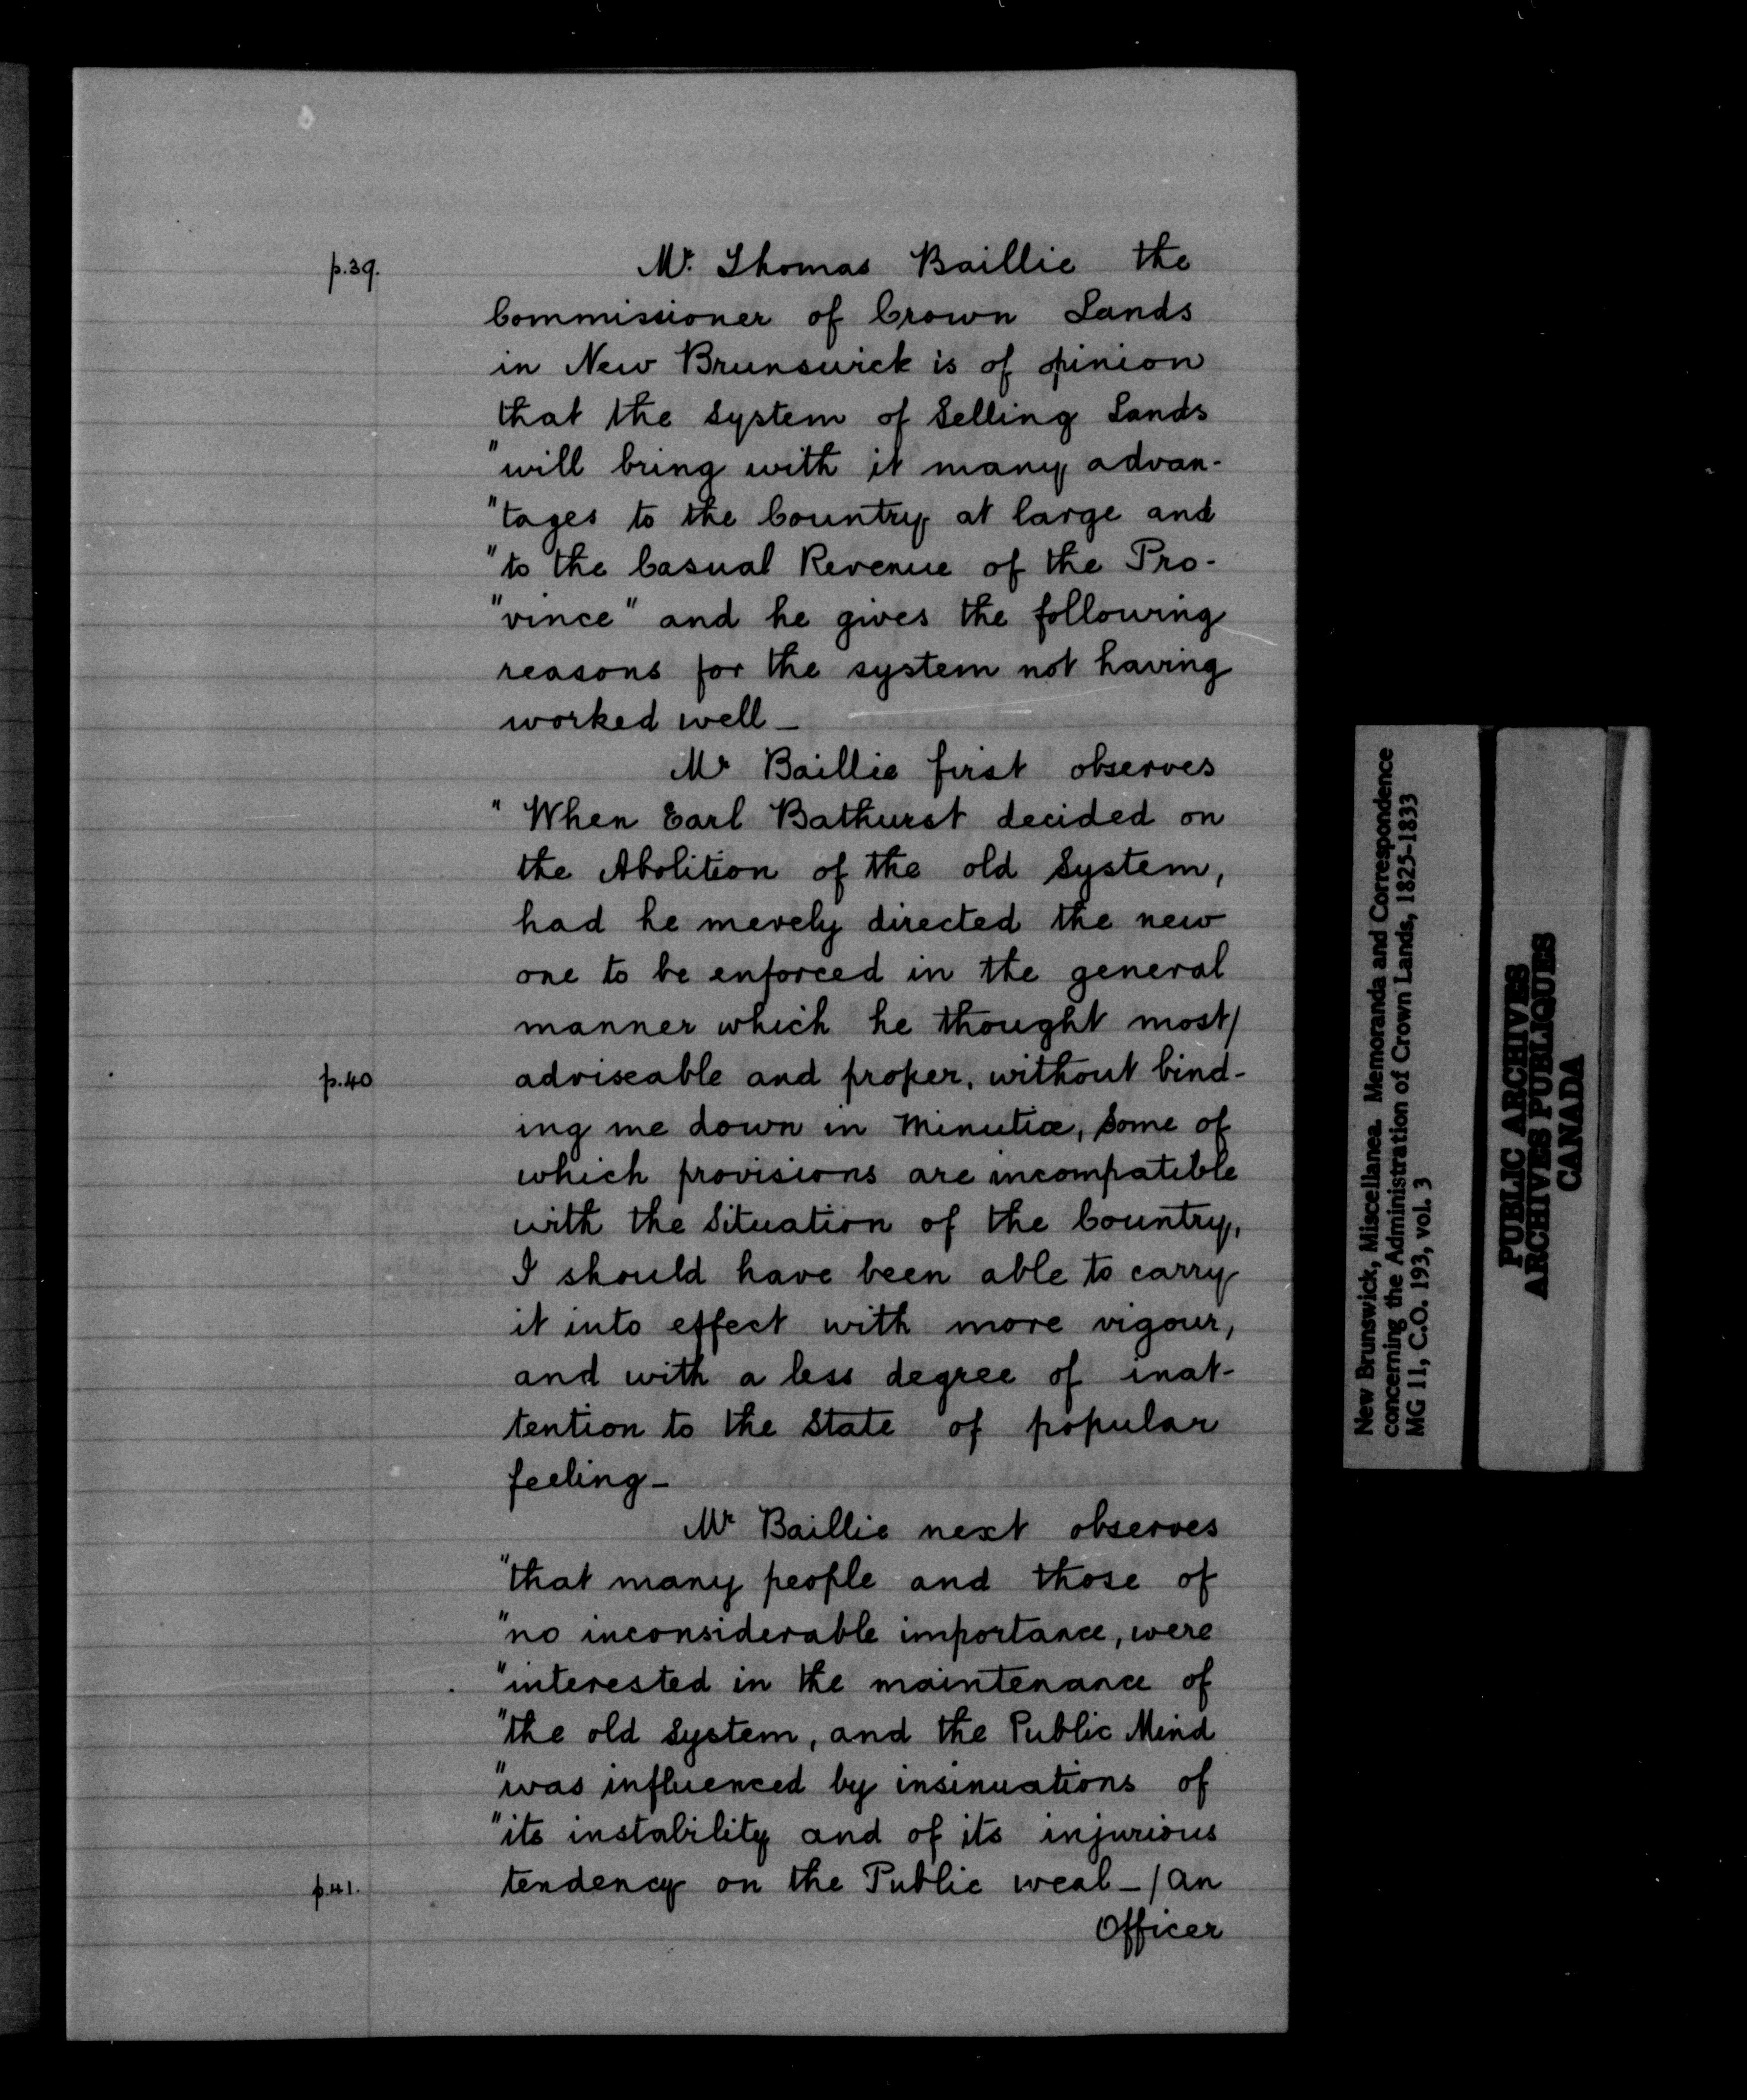 p.39.
Mr. Thomas Baillie the
Commissioner of Crown Lands
in New Brunswick is of opinion
that the system of Selling Lands
"will bring with it many advan-
"tages to the Country at large and
"to the Casual Revenue of the Pro-
"vince" and he gives the following
reasons for the system not having
worked well_
Mr Baillie first observes
" When Earl Bathurst decided on
the Abolition of the old System,
had he merely directed the new
one to be enforced in the general
manner which he thought most/
p.40
adviseable and proper, without bind-
ing me down in Minutiæ, some of
which provisions are incompatible
with the Situation of the Country,
I should have been able to carry
it into effect with more vigour,
and with a less degree of inat-
tention to the State of popular
feeling_
Mr Baillie next observes
"that many people and those of
"no inconsiderable importance, were
"interested in the maintenance of
"the old System, and the Public Mind
"was influenced by insinuations of
"its instability and of its injurious
p.41.
tendency on the Public weal_/an
Officer
New Brunswick, Miscellanea. Memoranda and Correspondence
concerning the Administration of Crown Lands, 1825-1833
MG 11, C.O. 193, vol. 3
PUBLIC ARCHIVES
ARCHIVES PUBLIQUES
CANADA